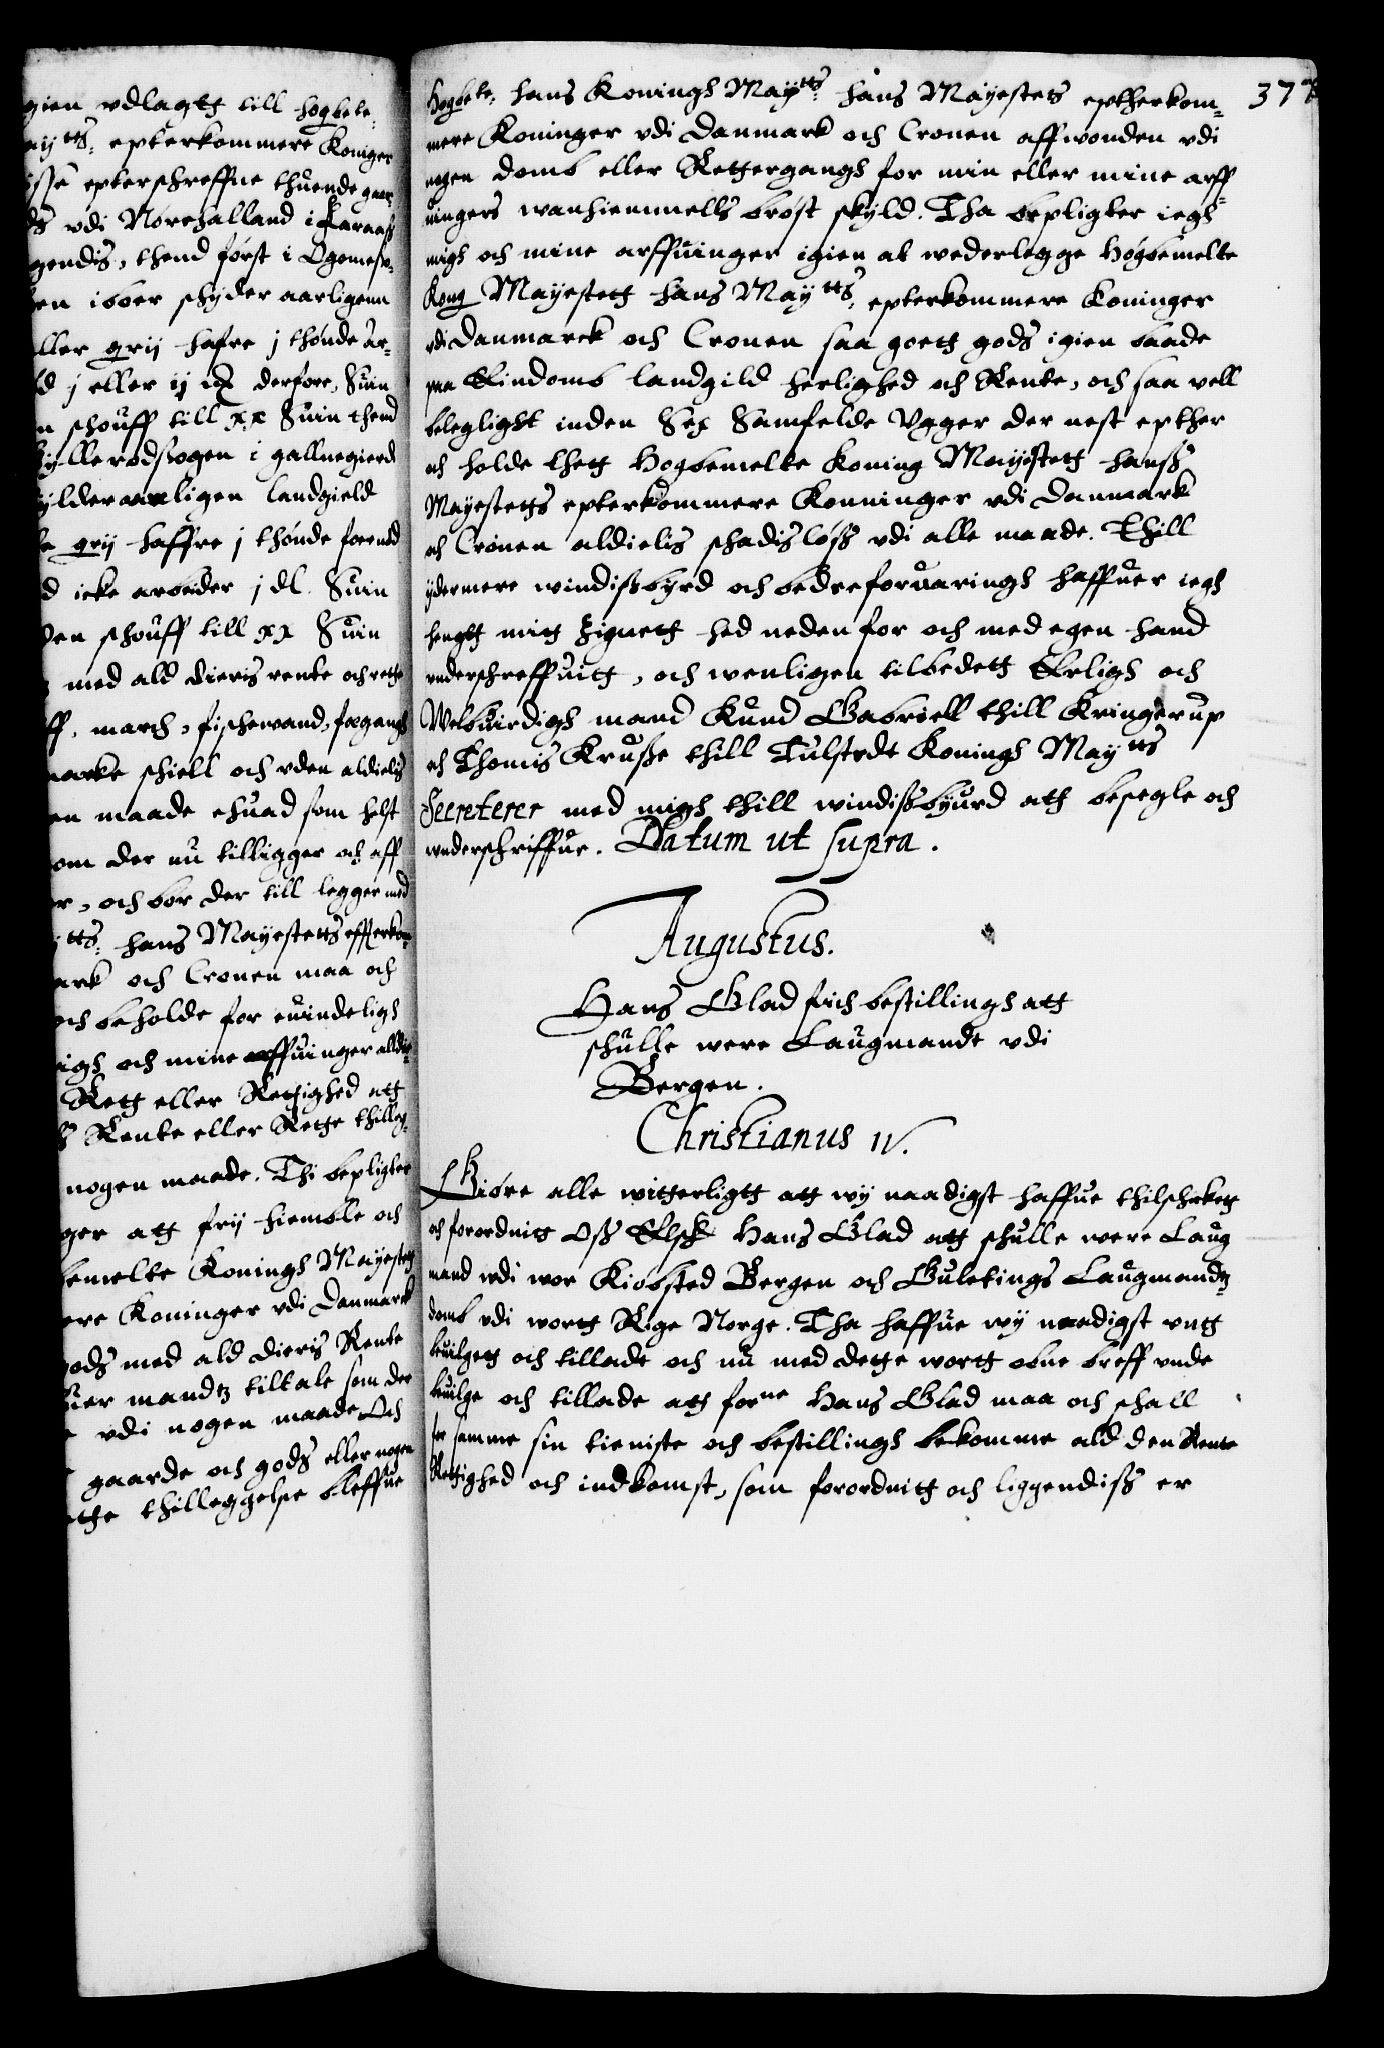 gien vdlagtt till høgbete:
aytts: epterkommere Koniger
isse epterschreffne thuende gaar
ds vdi Nørehalland i Faraas
gendis, thend først i Ogomes
en iboer schyder aarligenn
ller grij hafre j thønde ar-
ld j eller ij derfore, Suin
n schouff till xx Suin thend
yllerødssogen i gallnegierd
ylder aarligen landgield
grij haffre j thønde foernød
d icke arbeder j dl. Suin
den schouff till xx Suin
med ald dieris rente och rette
ff, march, fischewand, foegangh
marke schiell och uden aldielis
en maade ehuad som helst
om der nu tilligger och aff
r, och bør der till legger med
tts: hans Mayestetts effterkom-
ark och Cronen maa och
och beholde for euindeligh
igh och mine arffuinger alldie-
Rett eller Rettighed att
s Rente eller Rette thilleg-
nogen maade. Thi bepligter
ger att frij hiemble och
bemelte Konings Mayestett
ere Koninger vdi Danmarck
gods med ald dieris Rente
uer mandtz tiltale som der
vdi nogen maade Och
gaarde och gods eller nogen
tte thilleggelse bleffue
37
Hogbete: hans Konings Maytts: hans Mayestets eptherkom-
mere Koninger vdi Danmark och Cronen affwonden vdi
nogen domb eller Rettergangh for min eller mine arff-
uingers wanhiemmells brøst skyld. Tha bepligter iegh
migh och mine arffuinger igien at wederlegge Høgbemelte
Kong Mayestett hans Maytts: epterkommere Koninger
vdi Danmarck och Cronen saa goett gods igien baade
paa Eindomb landgild herlighed och Rente, och saa vell
beleglight inden Sex Samfelde Vgger der nest epther
och holde thett Hogbemelte Koning Mayestett hanss
Mayestetts epterkommere Konninger vdi Danmark
och Cronen aldielis schadisløss vdi alle maade. Thill
ydermere windissbyrd och bedre foruaringh haffuer iegh
hengtt mitt Zignett hed neden for och med egen hand
vnderschreffuitt, och wenligen tilbedett Erligh och
Welbuirdigh mand Knud Gabriell thill Kringerup
och Thomis Krusse thill Tulstedt Konings Maytts
Secreterer med migh thill windissbyurd att besegle och
wnderschriffue. Datum ut supra.
Augustus.
Hans Glad fich bestillingh att
schulle were Laugmandt vdi
Bergen.
Christianus IV.
Giøre alle witterligtt att wij naadigst haffue thilschickett
och forordnitt Oss Elsch Hans Glad att schulle were Laug
mand wdi wor Kiøbsted Bergen och Guletings Laugmandtz-
domb vdi wortt Rige Norge. Tha haffue wij naadigst vntt
beuilgett och tilladt och nu med dette wortt obne breff vnde
beuilge och tillade att forne Hans Glad maa och schall
for samme sin tieniste och bestillingh bekomme ald den Rente
Rettighed och indkomst, som forordnitt och liggendiss er